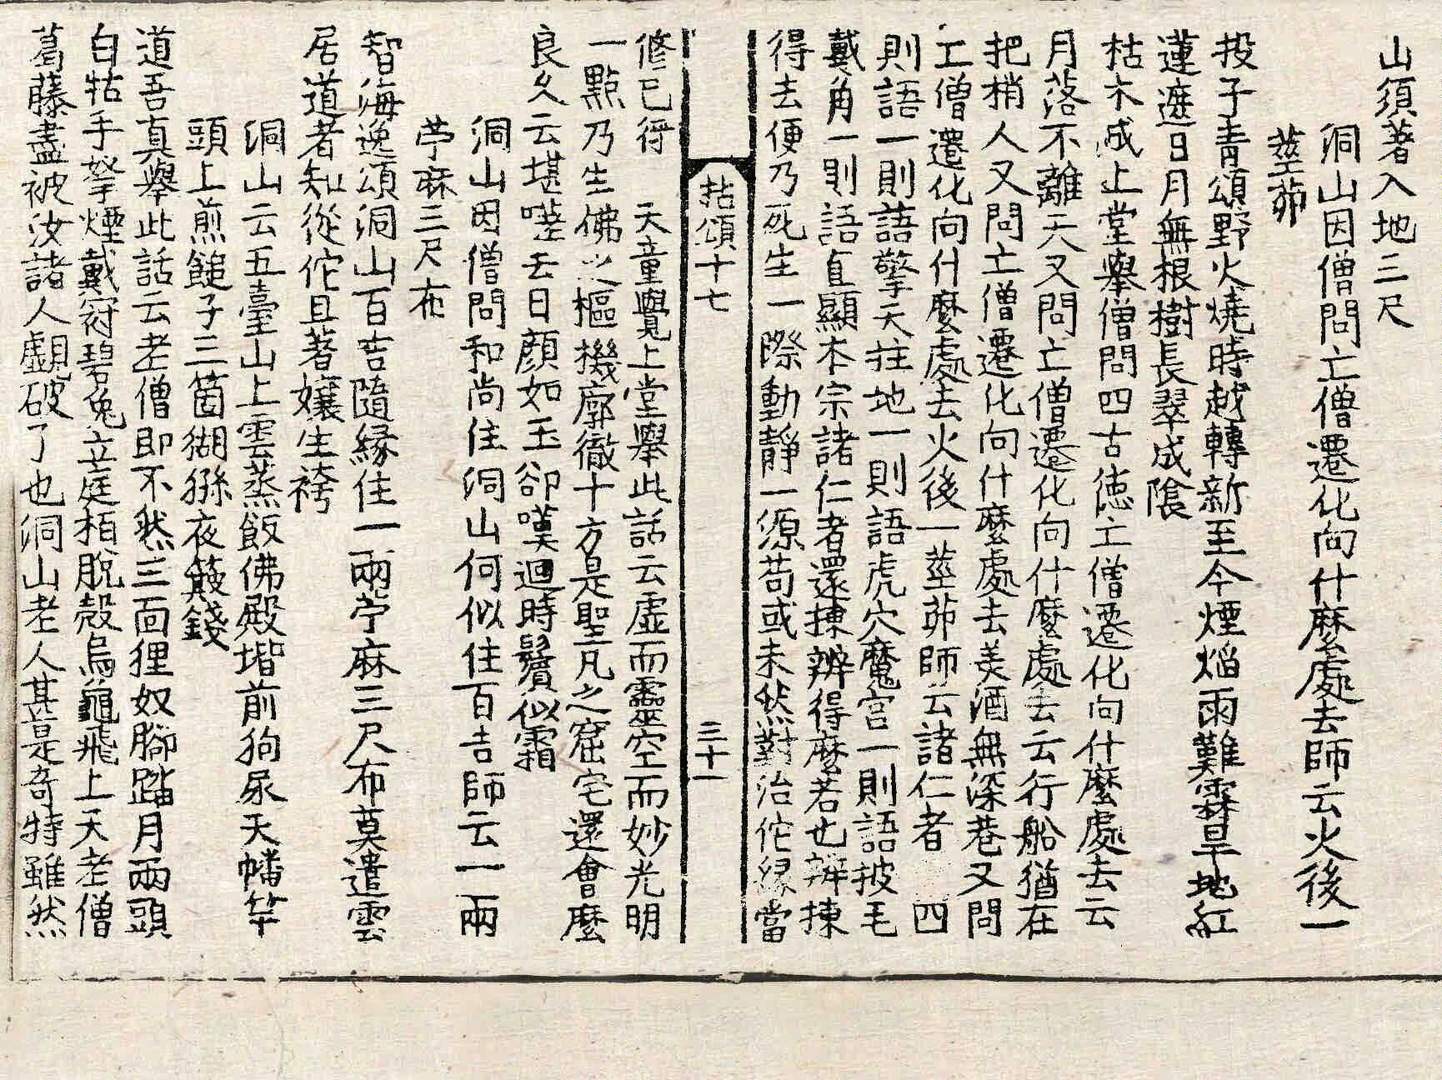 山須著入地三尺
洞山因僧問亡僧遷化向什麼處去師云火後一
莖茆
投子青頌野火燒時越轉新至今煙焰雨難霖旱地紅
蓮遮日月無根樹長翠成陰
枯木成上堂舉僧問四古德亡僧遷化向什麼處去云
月落不離天又問亡僧遷化向什麼處去云行船猶在
把梢人又問亡僧遷化向什麼處去美酒無深巷又問
亡僧遷化向什麼處去火後一莖茆師云諸仁者 四
則語一則語擎天拄地一則語虎穴魔宮一則語披毛
戴角一則語直顯本宗諸仁者還揀辨得麼若也辨揀
得去便乃死生一際動靜一源苟或未然對治佗緣當
拈頌十七 三十一
修已得 天童覺上堂舉此話云虛而靈空而妙光明
一點乃生佛之樞機廓徹十方是聖凡之窟宅還會麼
良久云堪嗟去日顏如玉卻嘆迴時鬢似霜
洞山因僧問和尚住洞山何似住百吉師云一兩
苧麻三尺布
智海逸頌洞山百吉隨緣住一兩苧麻三尺布莫遣雲
居道者知從佗且著孃生袴
洞山云五臺山上雲蒸飯佛殿堦前狗尿天幡竿
頭上煎䭔子三箇猢猻夜簸錢
道吾真舉此話云老僧即不然三面狸奴腳踏月兩頭
白牯手拏煙戴冠碧兔立庭柏脫殼烏龜飛上天老僧
葛藤盡被汝諸人覷破了也洞山老人甚是奇特雖然